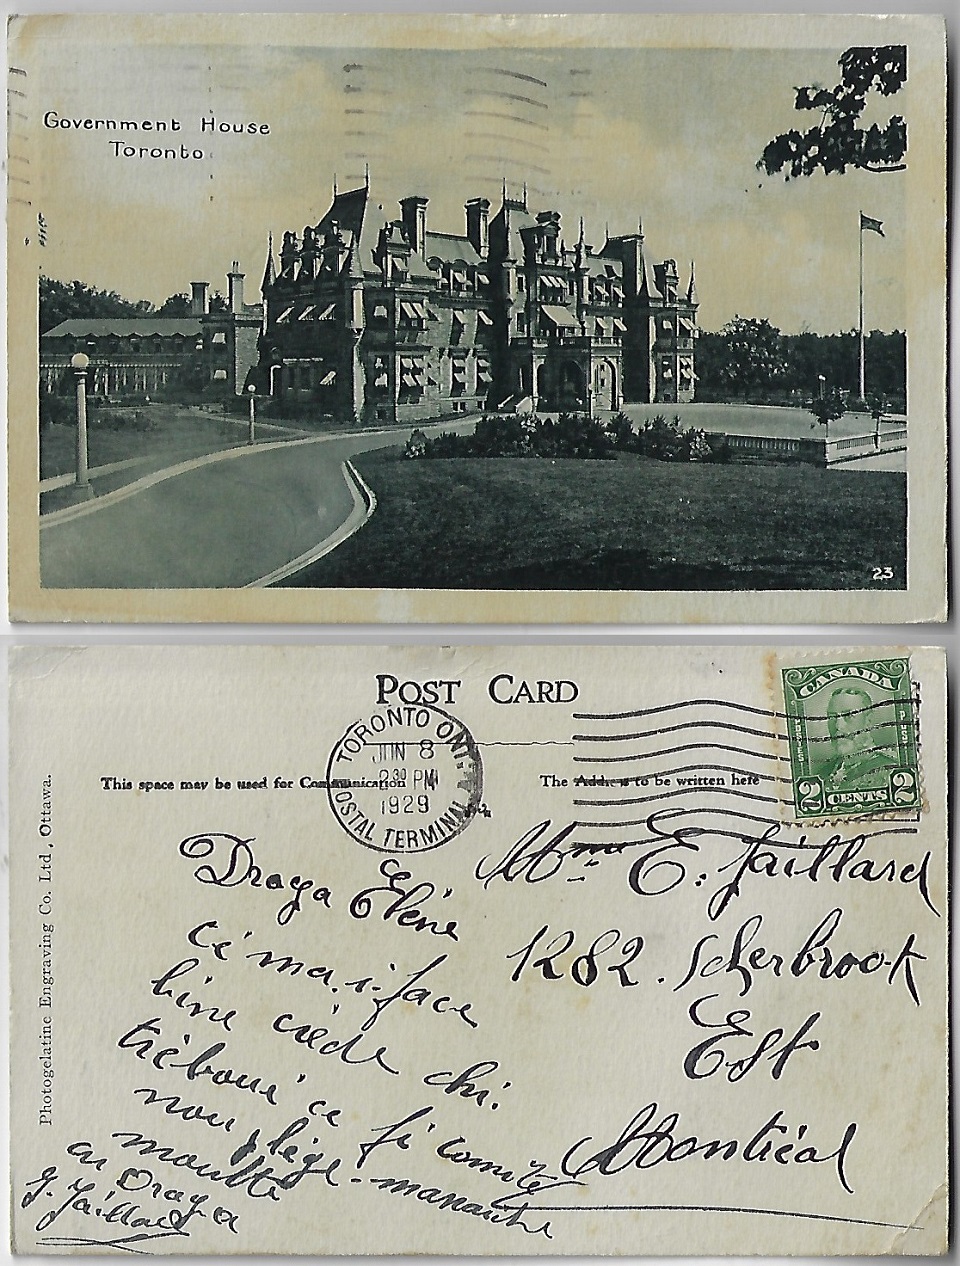 Government House
Toronto
23
POST CARD
TORONTO ONT.
JUN 8
2 30 PM
1929
POSTAL TERMINAL A
CANADA
POSTES
POSTAGE
2 CENTS 2
This space may be used for Communication
The Address to be written here
Photogelatine Engraving Co. Ltd, Ottawa.
Mme E. Jaillard
1282. Scherbrook
Est
Montréal
Draga Elene
ce mai face
bine crede
treboui ce fi
nou
Draga
J. Jaillard